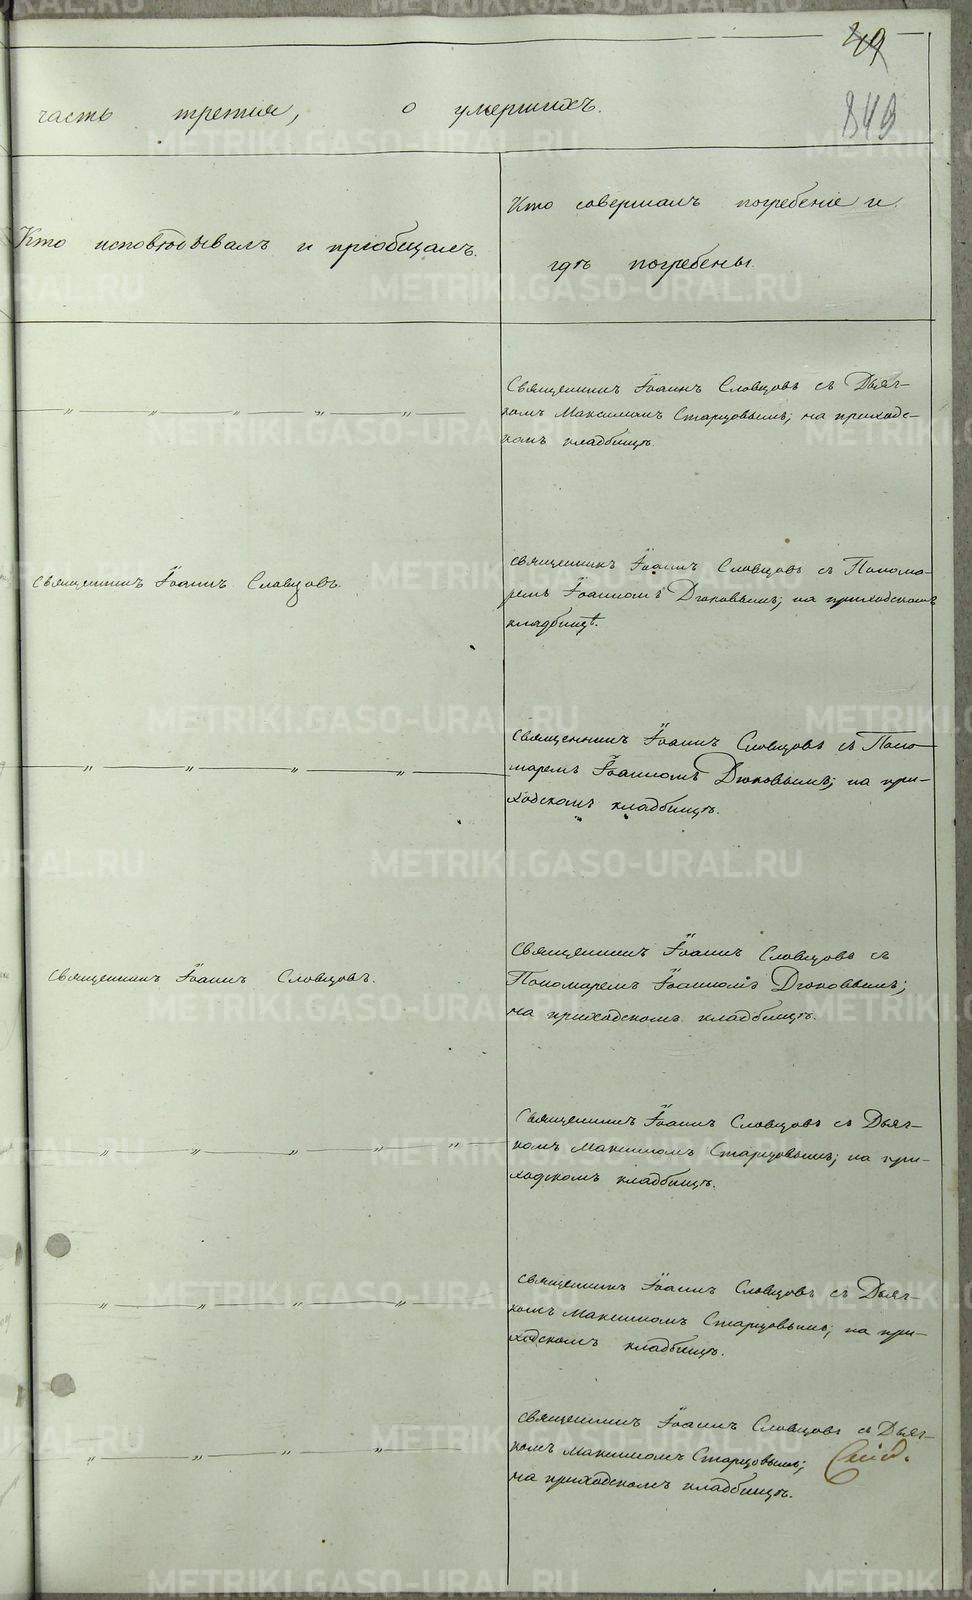 49
849
часть третія, о умершихъ.
Кто исповѣдывалъ и пріобщалъ.
Кто совершалъ погребеніе и
гдѣ погребены.
Священникъ Іоаннъ Словцовъ съ Дьяч-
комъ Максимомъ Старцовымъ; на приходс-
комъ кладбищѣ.
Священникъ Іоаннъ Словцовъ.
Священникъ Іоаннъ Словцовъ съ Поно-
маремъ Іоанномъ Дюковымъ; на приходскомъ
кладбищѣ.
Священникъ Іоаннъ Словцовъ съ Поно-
маремъ Іоанномъ Дюковымъ; на при-
ходскомъ кладбищѣ.
Священникъ Іоаннъ Словцовъ.
Священникъ Іоаннъ Словцовъ съ
Пономаремъ Іоанномъ Дюковымъ;
на приходскомъ кладбищѣ.
Священникъ Іоаннъ Словцовъ съ Дьяч-
комъ Максимомъ Старцовымъ; на при-
ходскомъ кладбищѣ.
Священникъ Іоаннъ Словцовъ съ Дьяч-
комъ Максимомъ Старцовымъ; на при-
ходскомъ кладбищѣ.
Священникъ Іоаннъ Словцовъ съ Дьяч-
комъ Максимомъ Старцовымъ;
на приходскомъ кладбищѣ.
METRIKI.GASO-URAL.RU